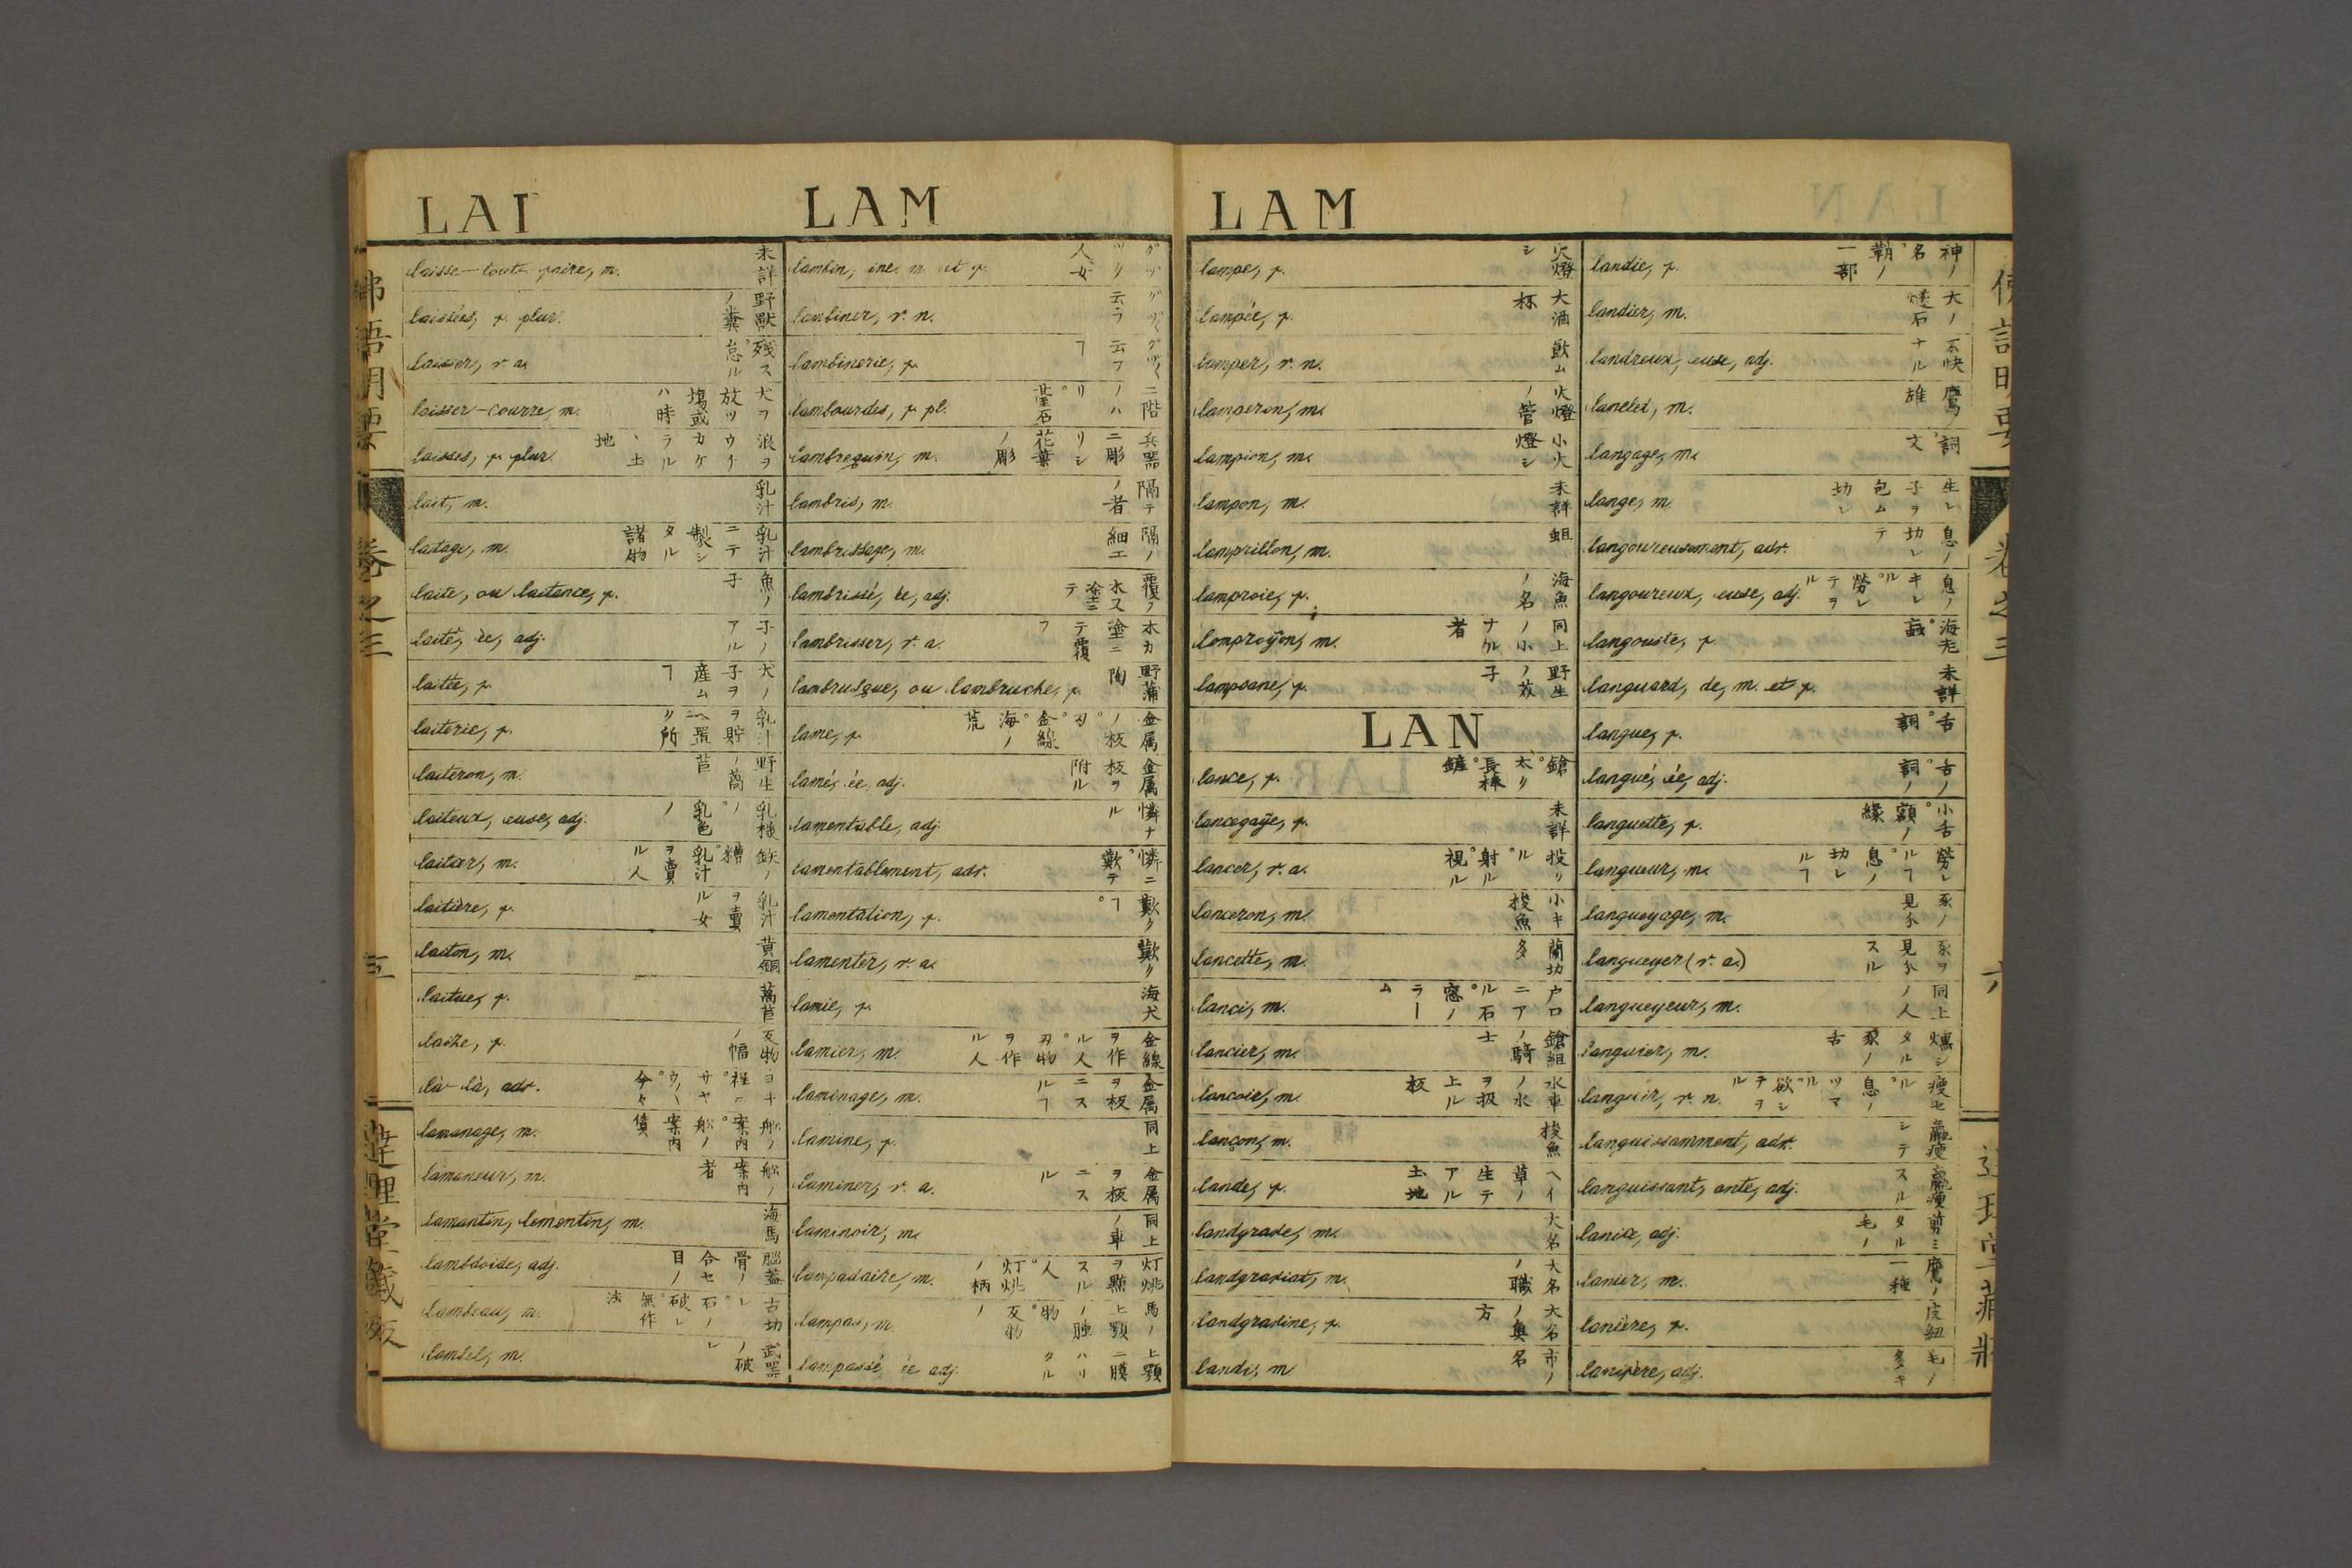 LAI
laisse-tout-faire, m. 未詳
laissées, f. plur. 野獸ノ糞
laisser, v. a. 残ス。怠ル
laisser-courre, m. 犬ヲ放ツ塲或ハ時
laisses, f. plur. 浪ヲウケカケラルヽ土地
lait, m. 乳汁
laitage, m. 乳汁ニテ製シタル諸物
laite, ou laitance, f. 魚ノ子
laité, ée, adj. 子ノアル
laitée, f. 犬ノ子ヲ産ムヿ
laiterie, f. 乳汁ヲ貯ヘ置所
laiteron, m. 野生ノ萵苣
laiteux, euse, adj. 乳様ノ。乳色ノ
laitier, m. 鉄ノ糟。乳汁ヲ賣ル人
laitière, f. 乳汁ヲ賣ル女
laiton, m. 黄銅
laitue, f. 萵苣
laize, f. 反物ノ幅
là-là, adv.
lamanage, m. 舩ノ案内。舩ノ案内債
lamaneur, m. 舩ノ案内者
lamantin, lamentin, m. 海馬
lambdoïde, adj. 腦蓋骨ノ合セ目ノ
lambeau, m. 古切レ。石ノ破レ。無作法
lambel, m. 武器ノ破レ
LAM
lambin, ine. m. et f. グヅヅリ人女
lambiner, v. n. グヅ〱云フ
lambinerie, f. グヅ〱云フヿ
lambourdes, f. pl. 二階ノハリ。莹石
lambrequin, m. 兵器ニ彫リシ花葉ノ彫
lambris, m. 隔テノ者
lambrissage, m. 隔ノ細工
lambrissé, ée, adj.
lambrisser, v. a. 木カ塗ニテ覆フ
lambrusque, ou lambruche, f. 野蒲陶
lame, f. 金属ノ板。刃。金線。海ノ荒
lamé, ée, adj. 金属板ヲ附ル
lamentable, adj. 憐ナル
lamentablement, adv. 憐ニ。歎テ
lamentation, f. 歎クヿ。
lamenter, v. a. 歎リ
lamie, f. 海犬
lamier, m. 金線ヲ作ル人。刃物ヲ作ル人
laminage, m. 金属ヲ板ニスルヿ
lamine, f. 同上
laminer, v. a. 金属ヲ板ニスル
laminoir, m. 同上ノ車
lampadaire, m. 灯挑ヲ點スル人。灯挑ノ柄
lampas, m. 馬ノ上顎ノ腫物。反物ノ
lampassé, ée adj. 上顎ニ膜ハリタル
LAM
lampe, f. 火燈シ
lampée, f. 大酒杯
lamper, v. n. 飲ム
lamperon, m. 火燈ノ管
lampion, m. 小火燈シ
lampon, m. 未詳
lamprillon, m. 蛆
lamproie, f. 海魚ノ名
lamproyon, m. 同上ノ小ナル者
lampsane, f. 野生ノ菽子
LAN
lance, f. 鎗。太リ長棒。鏟
lancegaye, f. 未詳
lancer, v. a. 投リル。射ル。視ル
lanceron, m. 小キ梭魚
lancette, m. 蘭切多
lanci, m. 戸口ニアル石。窓ノラーム
lancier, m. 鎗組ノ騎士
lançoir, m. 水車ノ水ヲ扱上ル板
lançon, m. 梭魚
lande, f. ヘイ草ノ生テアル土地
landgrave, m. 大名
landgraviat, m. 大名ノ職
landgravine, f. 大名ノ奥方
landi, m 市ノ名
landie, f.
landier, m. 大ノ燧石
landreux, euse, adj. 不快ナル
laneret, m. 鷹ノ雄
langage, m. 詞。文
lange, m. 生レ子ヲ包ム切レ
langoureusement, adv. 息ノ切レテ
langoureux, euse, adj. 息ノキレル。勞レテヲル
langouste, f. 海老。蝱
languard, de, m. et f. 未詳
langue, f. 舌。詞
langué, ée, adj. 舌ノ。詞ノ
languette, f. 小舌。額ノ縁
langueur, m. 勞レルヿ。息ノ切レルヿ
langueyage, m. 豕ノ見分
langueyer (v. a.) 豕ヲ見分スル
langueyeur, m. 同上ノ人
languier, m. 燻シタル豕ノ舌
languir, v. n. 瘦セル。息ノツマル。欲シテヲル
languissamment, adv. 羸瘦シテ
languissant, ante, adj. 羸瘦スル
lanice, adj. 剪ミタル毛ノ
lanier, m. 鷹ノ一種
lanière, f. 皮紐
lanifère, adj. 毛ノ多キ
卷之三
五
達理堂藏版
六